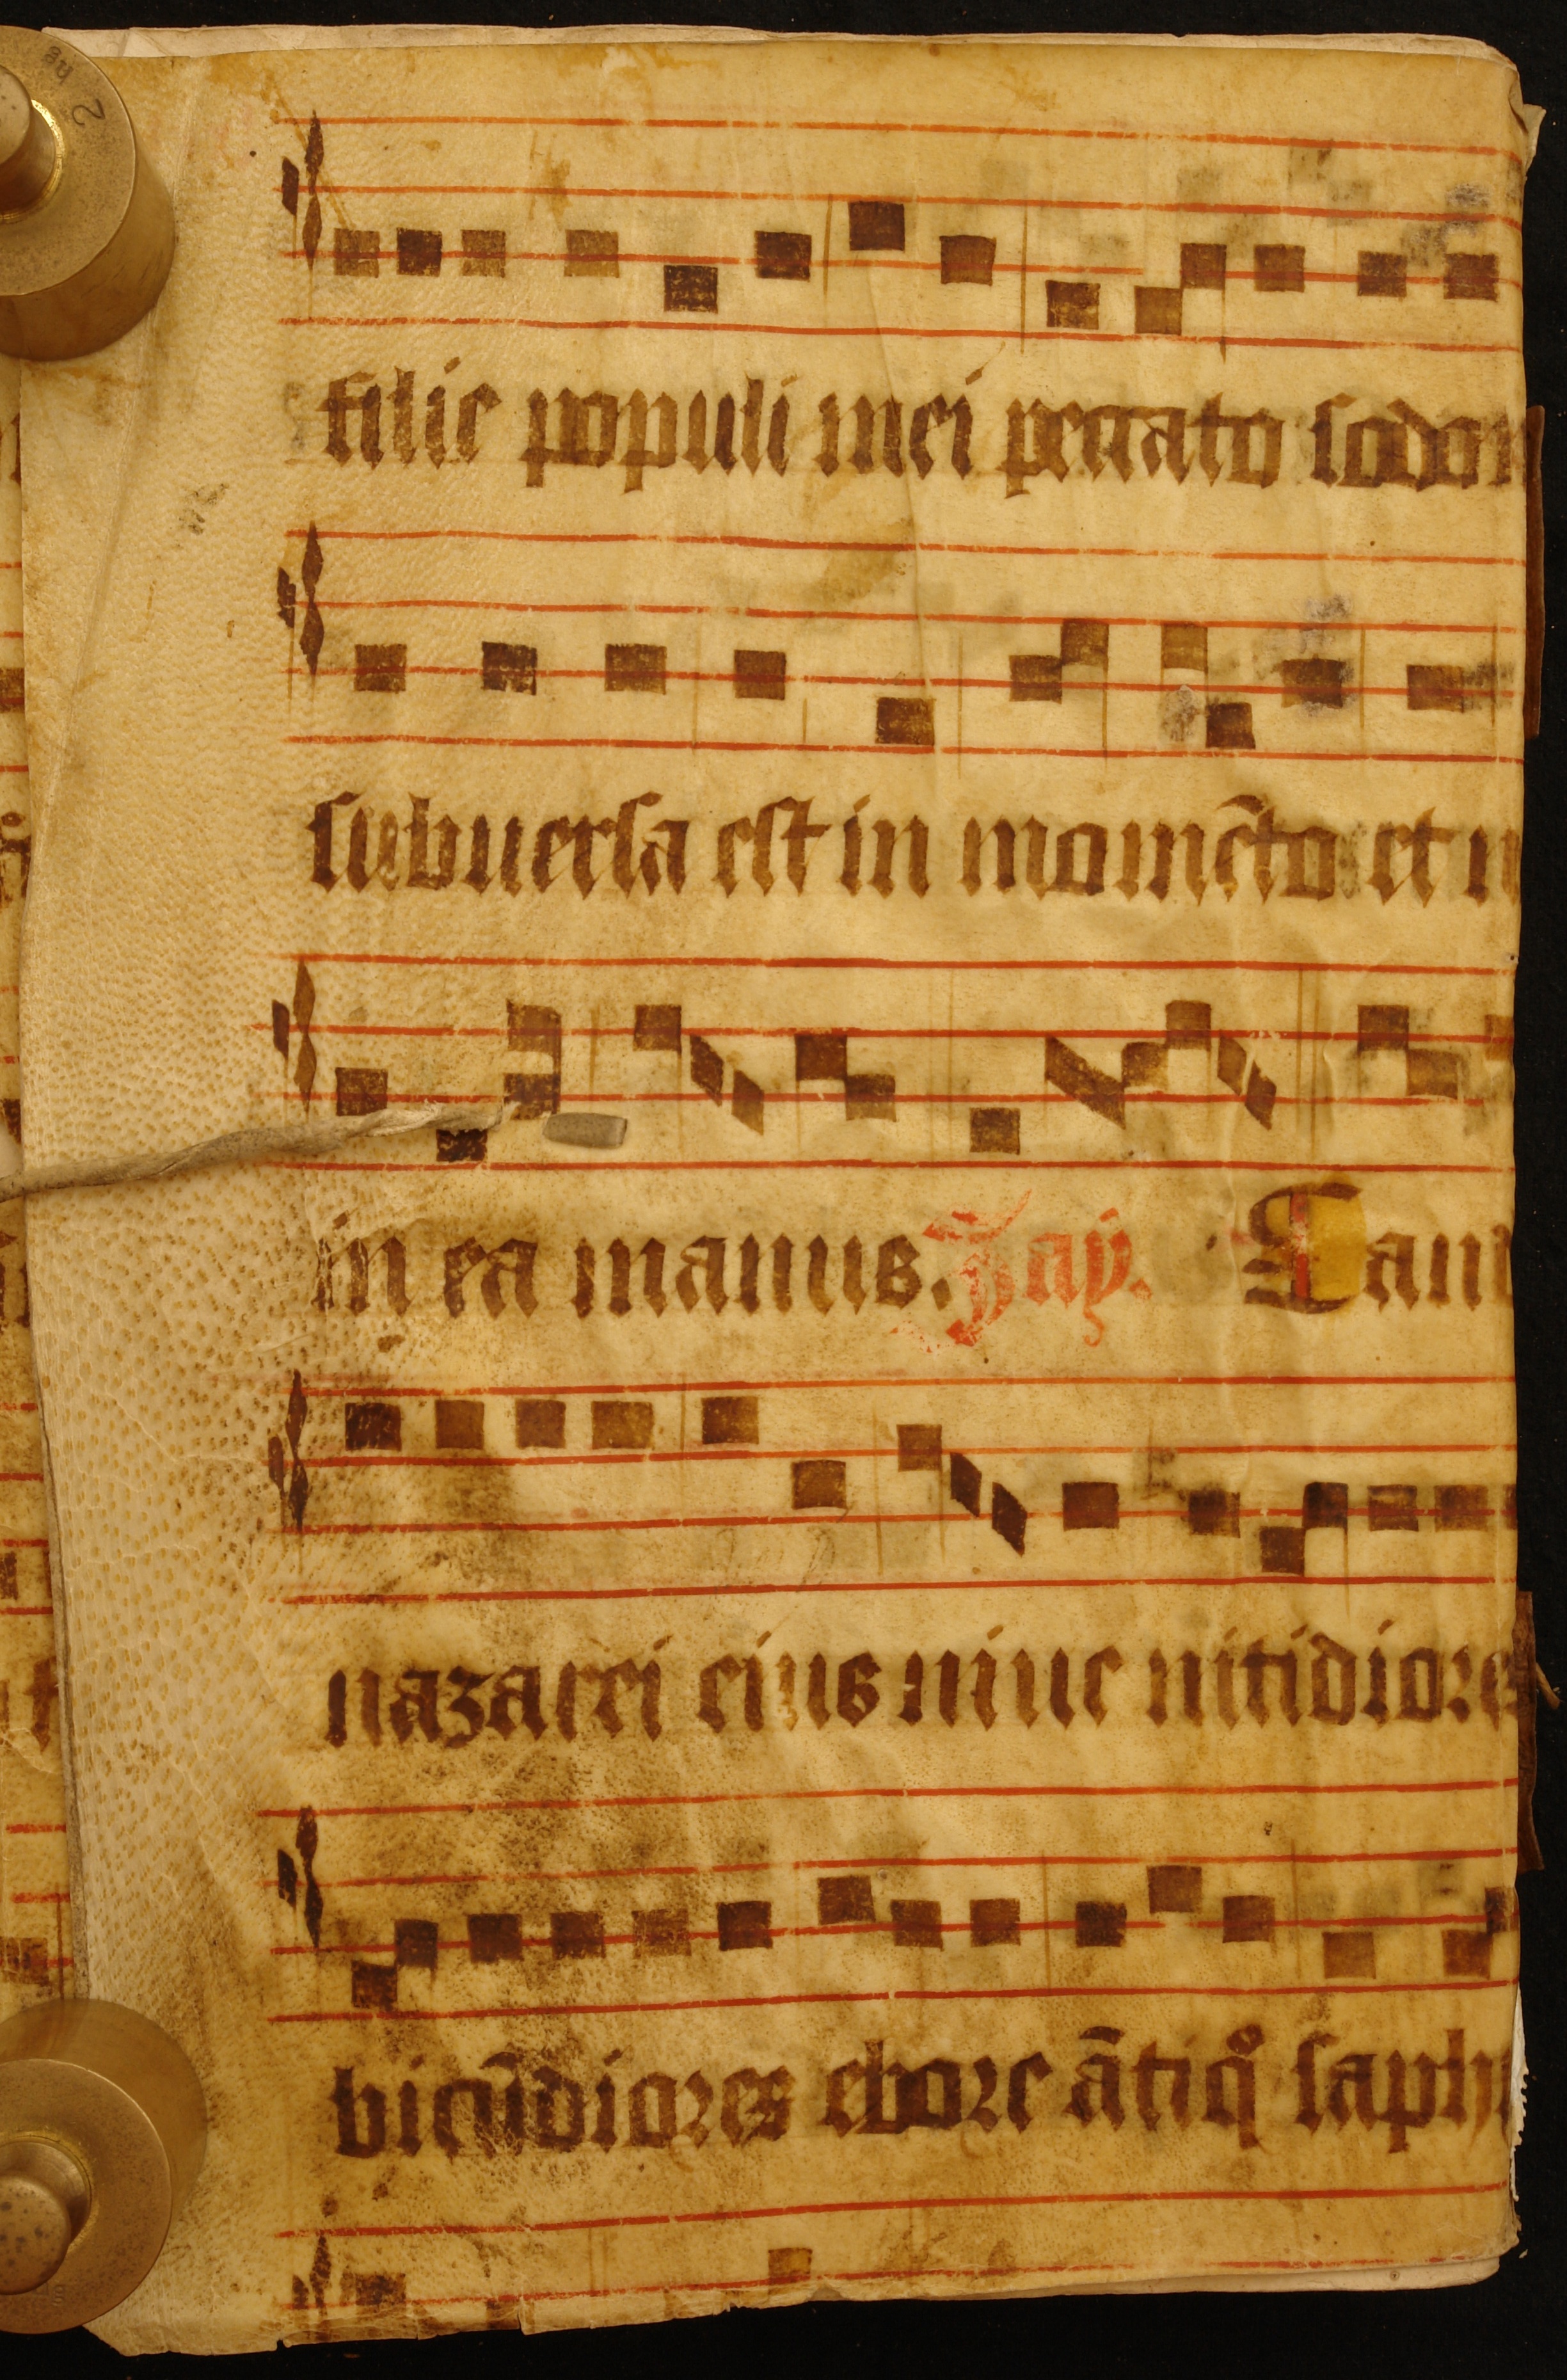 filie populi mei peccato sodom
subuersa est in momēto et n
in ea manus. Zaÿ. Cand
nazarei eius niue nitidiores
bicūdiores ebore ātiqͦ saphi